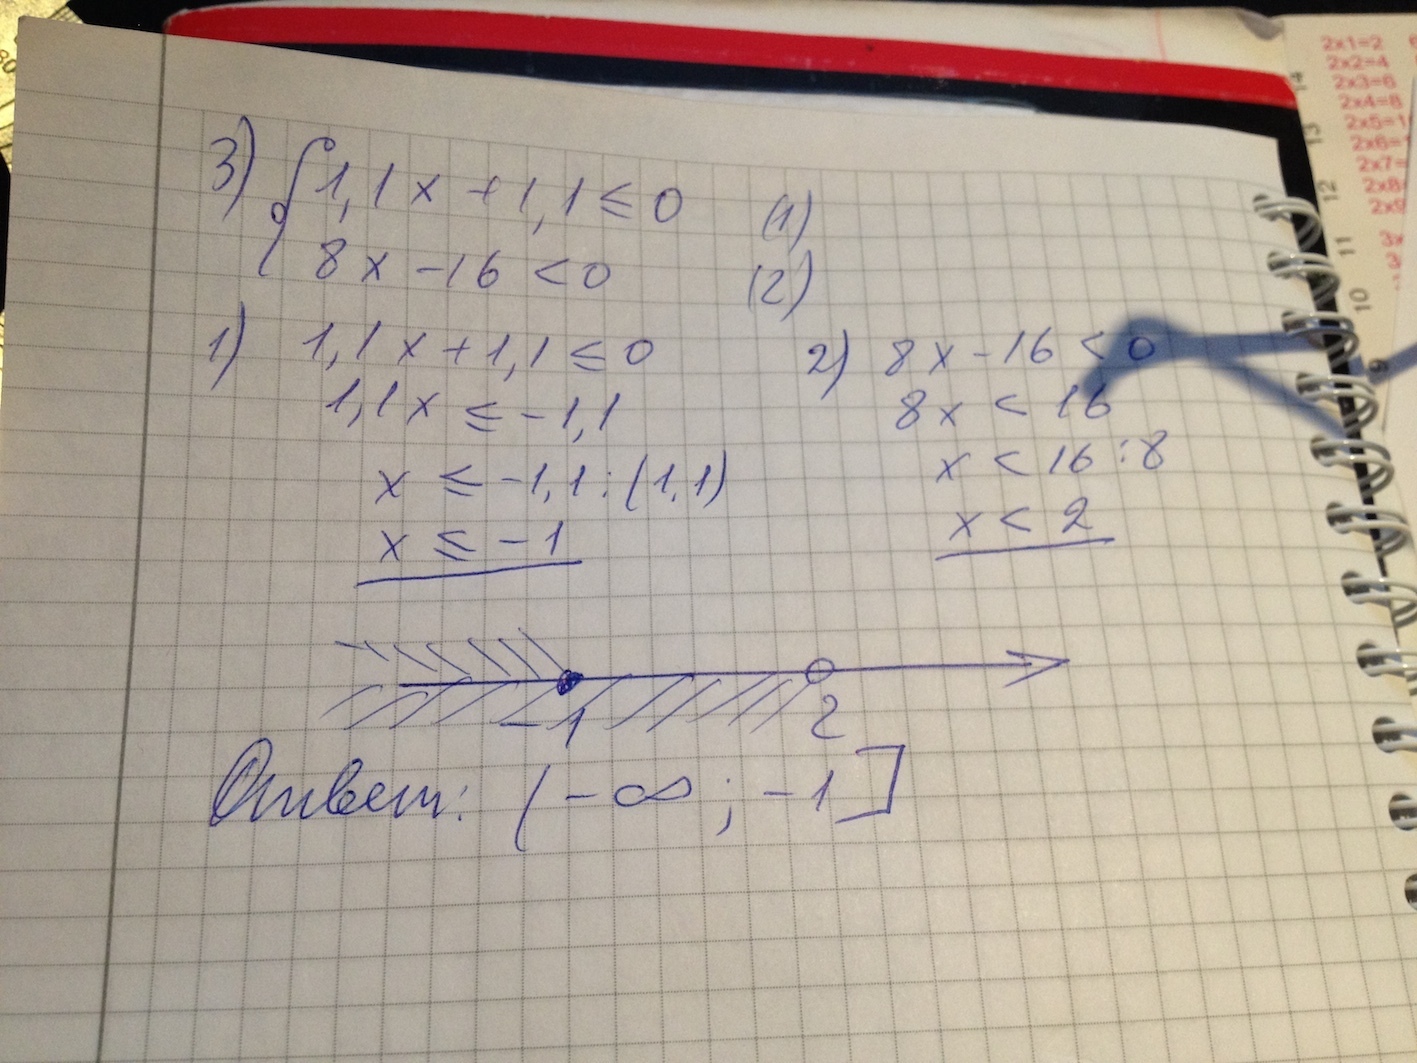 3) { 1,1x + 1,1 ≤ 0 (1)
8x - 16 < 0 (2)
1) 1,1x + 1,1 ≤ 0
1,1x ≤ -1,1
x ≤ -1,1 : (1,1)
x ≤ -1
2) 8x - 16 < 0
8x < 16
x < 16 : 8
x < 2
-1 2
Ответ: (-∞; -1]
2x1=2
2x2=4
2x3=6
2x4=8
2x5=1
2x6=1
2x7=
2x8
2x9
3x
3
14
13
12
11
10
9
80